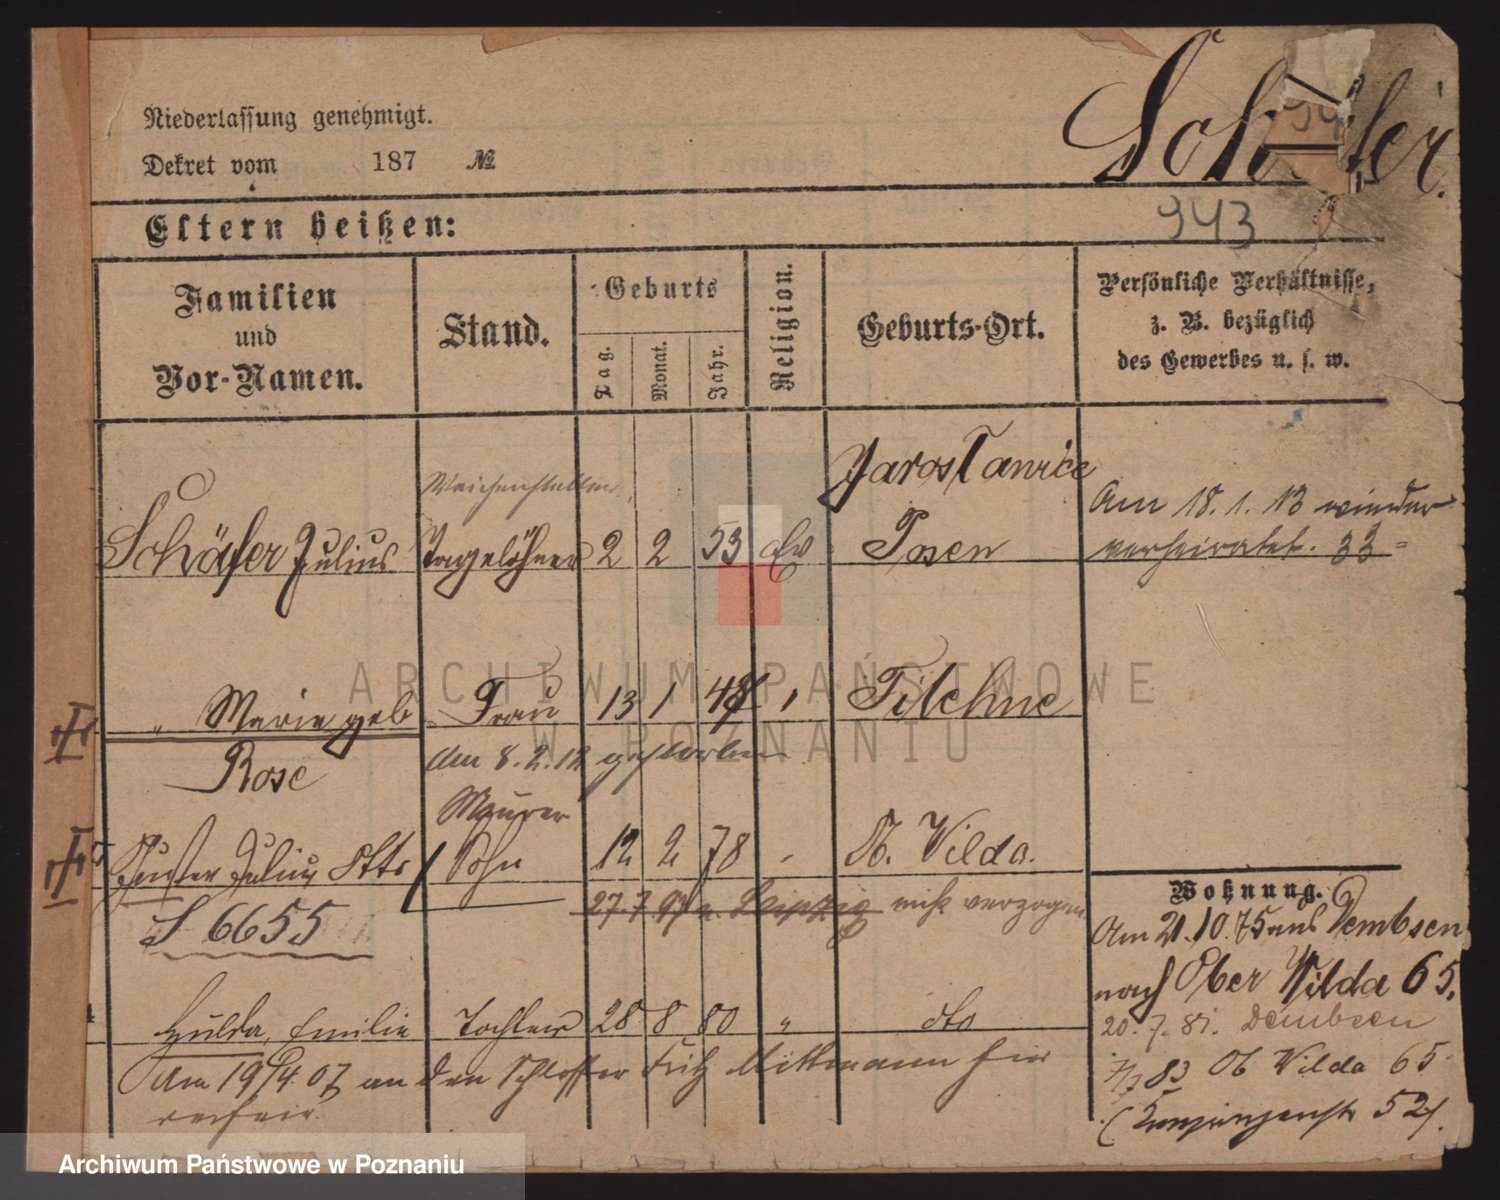 Niederlassung genehmigt.
Dekret vom 187 №
Schäfer.
943
Eltern heißen:
Familien und Vor-Namen.
Stand.
Geburts
Tag.
Monat.
Jahr.
Religion.
Geburts-Ort.
Persönliche Verhältnisse,
z. B. bezüglich
des Gewerbes u. s. w.
Weichensteller
Jarosławice
Schäfer Julius Tagelöhner 2 2 53 Ev Posen
Am 18. 1. 13 wieder
verheiratet. 33
" Marie geb Frau 13 1 48 Filehne
Rose
Am 8. 2. 12 gestorben
Maurer
Gustav Julius Otto Sohn 12 2 78 O. Wilda.
27. 7. 97 n. Leipzig nicht verzogen
S 6655
Hulda, Emilie Tochter 28 8 80 " dto
Am 19/4. 07 an den Schlosser Fritz Mittmann hier
verheir.
Wohnung.
Am 21. 10. 75 aus Dembsen
nach Ober Wilda 65.
20. 7. 81. Dembsen
83 Ob Wilda 65
52/.
ARCHIWUM PAŃSTWOWE
W POZNANIU
Archiwum Państwowe w Poznaniu